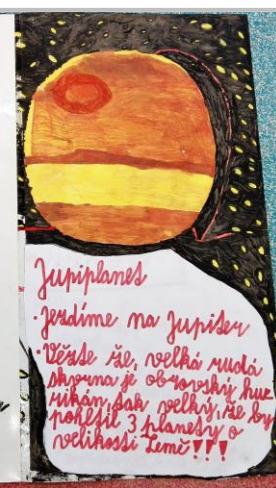 Jupiplanet
· Jezdíme na Jupiter
· Vězte že, velká rudá
skvrna je obrovský hur
rikán, tak velký, že by
pohltil 3 planety o
velikosti Země!!!